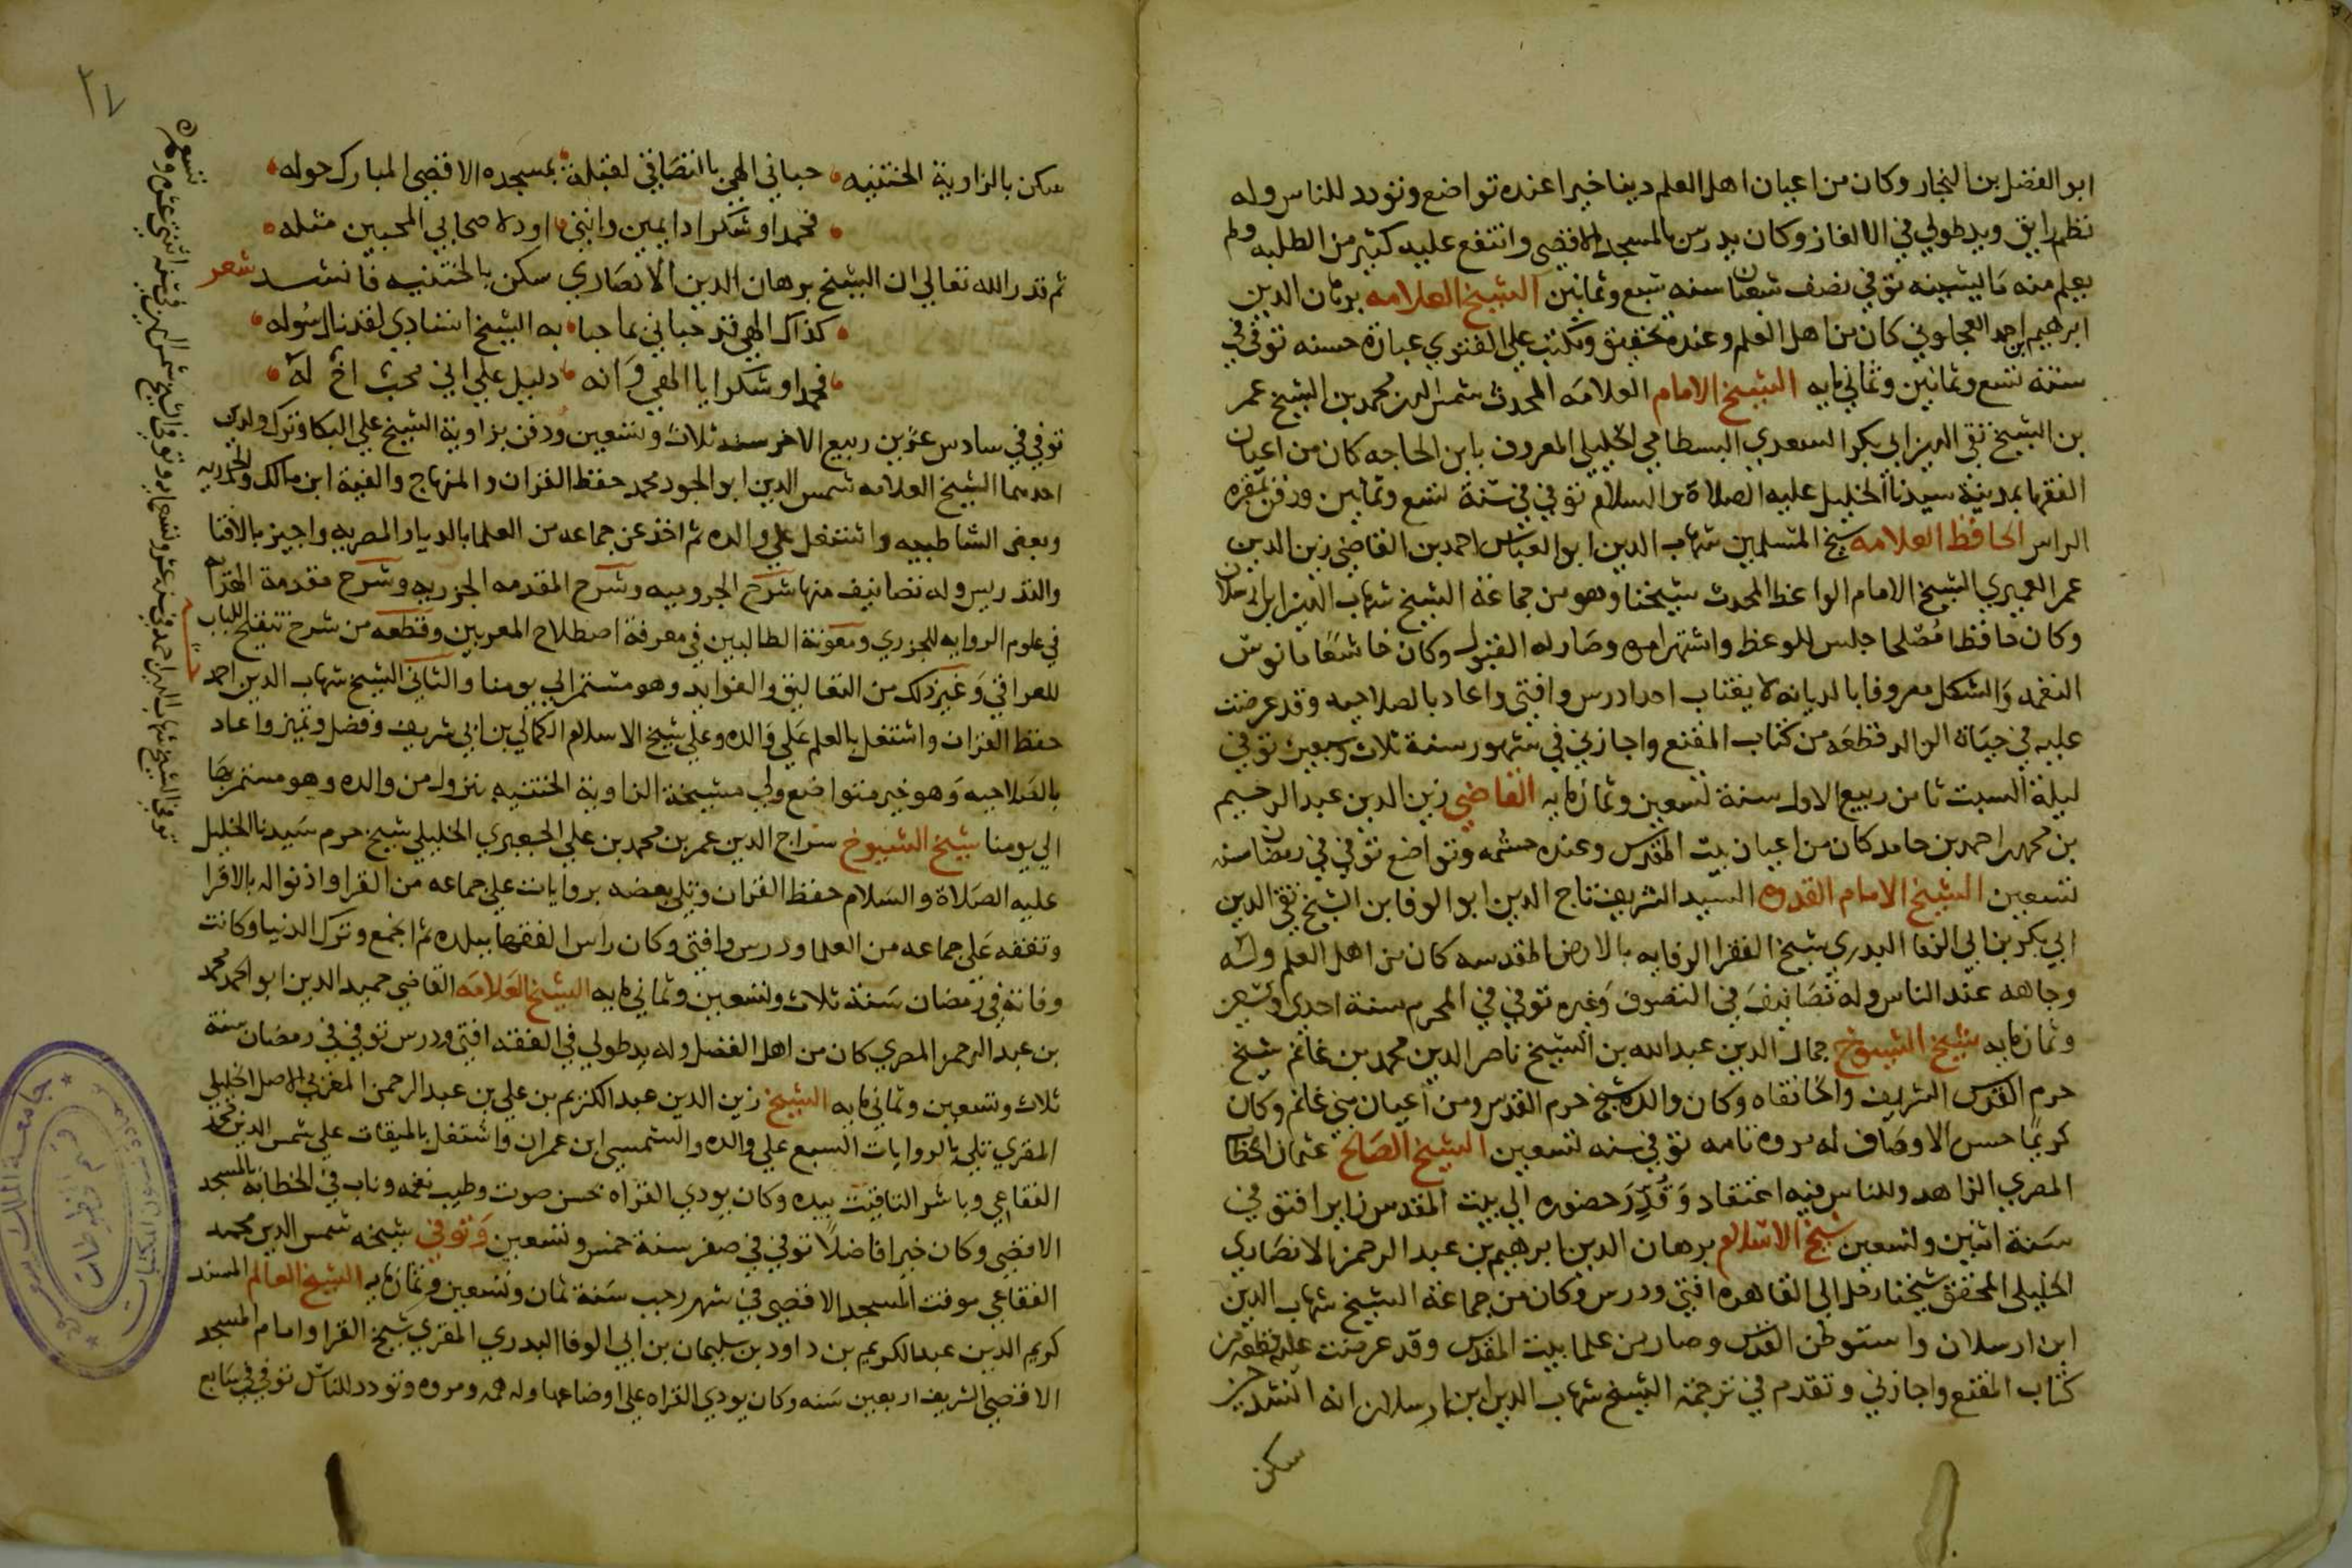 ابو الفضل بن النجار وكان من اعيان اهل العلم دينا خيرا عنده تواضع وتودد للناس وله
نظم رايق ويد طولي في الالغاز وكان يدرس بالمسجد الاقصي وانتفع عليه كثير من الطلبه ولم
يعلم منه ما يشينه توفي نصف شعبان سنه سبع وثمانين الشيخ العلامه برهان الدين
ابرهيم بن احمد العجلوني كان من اهل العلم وعنده تحقيق ويكتب علي الفتوي عبارة حسنه توفي في
سنة تسع وثمانين وثماني مايه الشيخ الامام العلامه المحدث شمس الدين محمد بن الشيخ عمر
بن الشيخ تقي الدين ابي بكر السعدي البسطامي الخليلي المعروف بابن الحاجه كان من اعيان
الفقها بمدينة سيدنا الخليل عليه الصلاة والسلام توفي في سنة تسع وثمانين ودفن بمقبرة
الراس الحافظ العلامه شيخ المسلمين شهاب الدين ابو العباس احمد بن القاضي زين الدين
عمر العميري الشيخ الامام الواعظ المحدث شيخنا وهو من جماعة الشيخ شهاب الدين ارسلان
وكان حافظا مصلحا جلس للوعظ واشتهر امره وصار له القبول وكان خاشعا مانوس
النغمه والشكل معروفا بالديانه لا يغتاب احدا درس وافتي واعاد بالصلاحيه وقد عرضت
عليه في حياة الوالد قطعه من كتاب المقنع واجازني في شهور سنة ثلاث وسبعين توفي
ليلة السبت ثامن ربيع الاول سنة تسعين وثمان مايه القاضي زين الدين عبد الرحيم
بن محمد بن احمد بن حامد كان من اعيان بيت المقدس وعنده حشمه وتواضع توفي في رمضان سنه
تسعين الشيخ الامام القدوه السيد الشريف تاج الدين ابو الوفا بن الشيخ تقي الدين
ابي بكر بن ابي الوفا البدري شيخ الفقرا الوفايه بالارض المقدسه كان من اهل العلم وله
وجاهه عند الناس وله تصانيف في التصوف وغيره توفي في المحرم سنة احدي وتسعين
وثمان مايه شيخ الشيوخ جمال الدين عبد الله بن الشيخ ناصر الدين محمد بن غانم شيخ
حرم القدس الشريف والخانقاه وكان والده شيخ حرم القدس ومن اعيان بني غانم وكان
كريما حسن الاوصاف له مروه تامه توفي سنه تسعين الشيخ الصالح عثمان الحطاب
المصري الزاهد وللناس فيه اعتقاد وقدر حضوره الي بيت المقدس زايرا فتوفي
سنة اثنين وتسعين شيخ الاسلام برهان الدين ابرهيم بن عبد الرحمن الانصاري
الخليلي المحقق شيخنا رحل الي القاهره افتي ودرس وكان من جماعة الشيخ شهاب الدين
ابن ارسلان واستوطن القدس وصار من علما بيت المقدس وقد عرضت عليه قطعه من
كتاب المقنع واجازني وتقدم في ترجمة الشيخ شهاب الدين ابن ارسلان انه انشد حين
سكن
٢٧
سكن بالزاوية الختنيه حباني الهي بالتصافي لقبلة بمسجده الاقصي المبارك حوله
فحمدا وشكرا دايمين وانني اود لاصحابي المحبين مثله
ثم قدر الله تعالي ان الشيخ برهان الدين الانصاري سكن بالختنيه فانشد شعر
كذاك الهي قد حباني بما حبا به الشيخ استاذي لقد نال سوله
فحمدا وشكرا يا الهي وانه دليل علي اني محب اخ له
توفي في سادس عشرين ربيع الاخر سنة ثلاث وتسعين ودفن بزاوية الشيخ علي البكا وترك ولدين
احدهما الشيخ العلامه شمس الدين ابو الجود محمد حفظ القران والمنهاج والفية ابن مالك والجزريه
وبعض الشاطبيه واشتغل علي والده ثم اخذ عن جماعه من العلما بالديار المصريه واجيز بالافتا
والتدريس وله تصانيف منها شرح الجروميه وشرح المقدمه الجزريه وشرح مقدمة الهداية
في علوم الروايه للجزري ومعونة الطالبين في معرفة اصطلاح المعربين وقطعه من شرح تنقيح اللباب
للعراقي وغير ذلك من التعاليق والفوايد وهو مستمر الي يومنا والثاني الشيخ شهاب الدين احمد
حفظ القران واشتغل بالعلم علي والده وعلي شيخ الاسلام الكمالي بن ابي شريف وفضل وتميز واعاد
بالصلاحيه وهو خير متواضع ولي مشيخة الزاوية الختنيه بنزول من والده وهو مستمر بها
الي يومنا شيخ الشيوخ سراج الدين عمر بن محمد بن علي الجعبري الخليلي شيخ حرم سيدنا الخليل
عليه الصلاة والسلام حفظ القران وتلي بعضه بروايات علي جماعه من القرا واذنوا له بالاقرا
وتفقه علي جماعه من العلما ودرس وافتي وكان راس الفقها ببلده ثم انجمع وترك الدنيا وكانت
وفاته في رمضان سنة ثلاث وتسعين وثماني مايه الشيخ العلامه القاضي حميد الدين ابو الحمد محمد
بن عبد الرحمن المصري كان من اهل الفضل وله يد طولي في الفقه افتي ودرس توفي في رمضان سنة
ثلاث وتسعين وثماني مايه الشيخ زين الدين عبد الكريم بن علي بن عبد الرحمن المغربي الاصل الخليلي
المقري تلي بالروايات السبع علي والده والشمسي ابن عمران واشتغل بالميقات علي شمس الدين محمد
الفقاعي وباشر التاقيت ببلده وكان يودي القراه بحسن صوت وطيب نغمه وناب في الخطابه بالمسجد
الاقصي وكان خيرا فاضلا توفي في صفر سنة خمس وتسعين وتوفي شيخه شمس الدين محمد
الفقاعي موقت المسجد الاقصي في شهر رجب سنة ثمان وتسعين وثمان مايه الشيخ العالم المسند
كريم الدين عبد الكريم بن داود بن سليمان بن ابي الوفا البدري المقري شيخ القرا وامام المسجد
الاقصي الشريف اربعين سنه وكان يودي القراه علي اوضاعها وله همه ومروه وتودد للناس توفي في سابع
جامعة الملك سعود
قسم المخطوطات